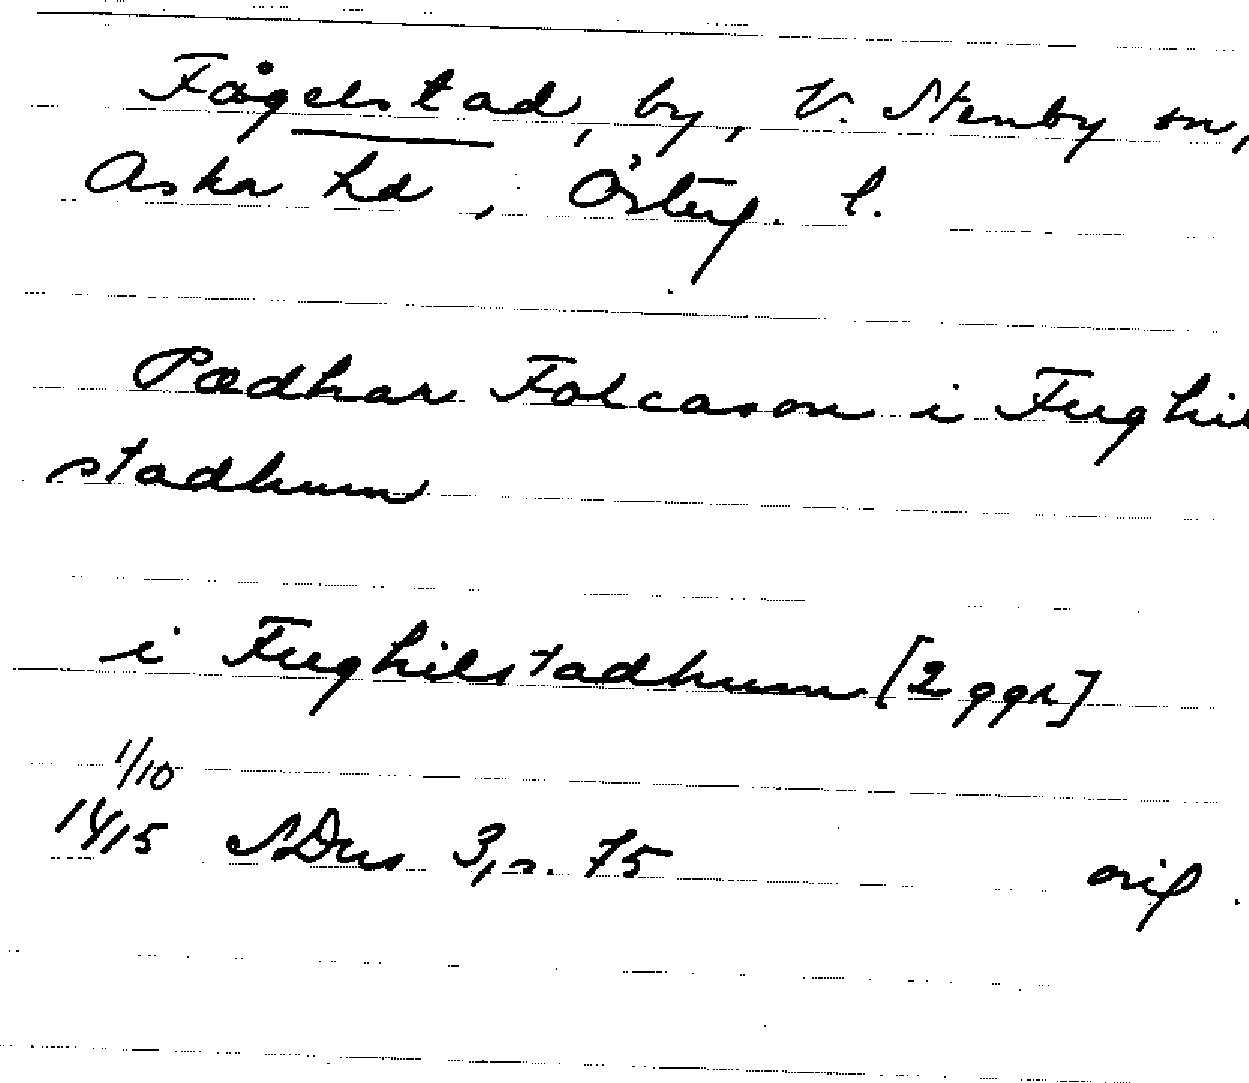 Fågelstad, by, V. Stenby sn,
Aska hd, Österg. l.
Pædhar Folcason i Fughil
stadhum
i Fughilstadhum [2 ggr]
1/10
1415 SDns 3, s. 75 orig.